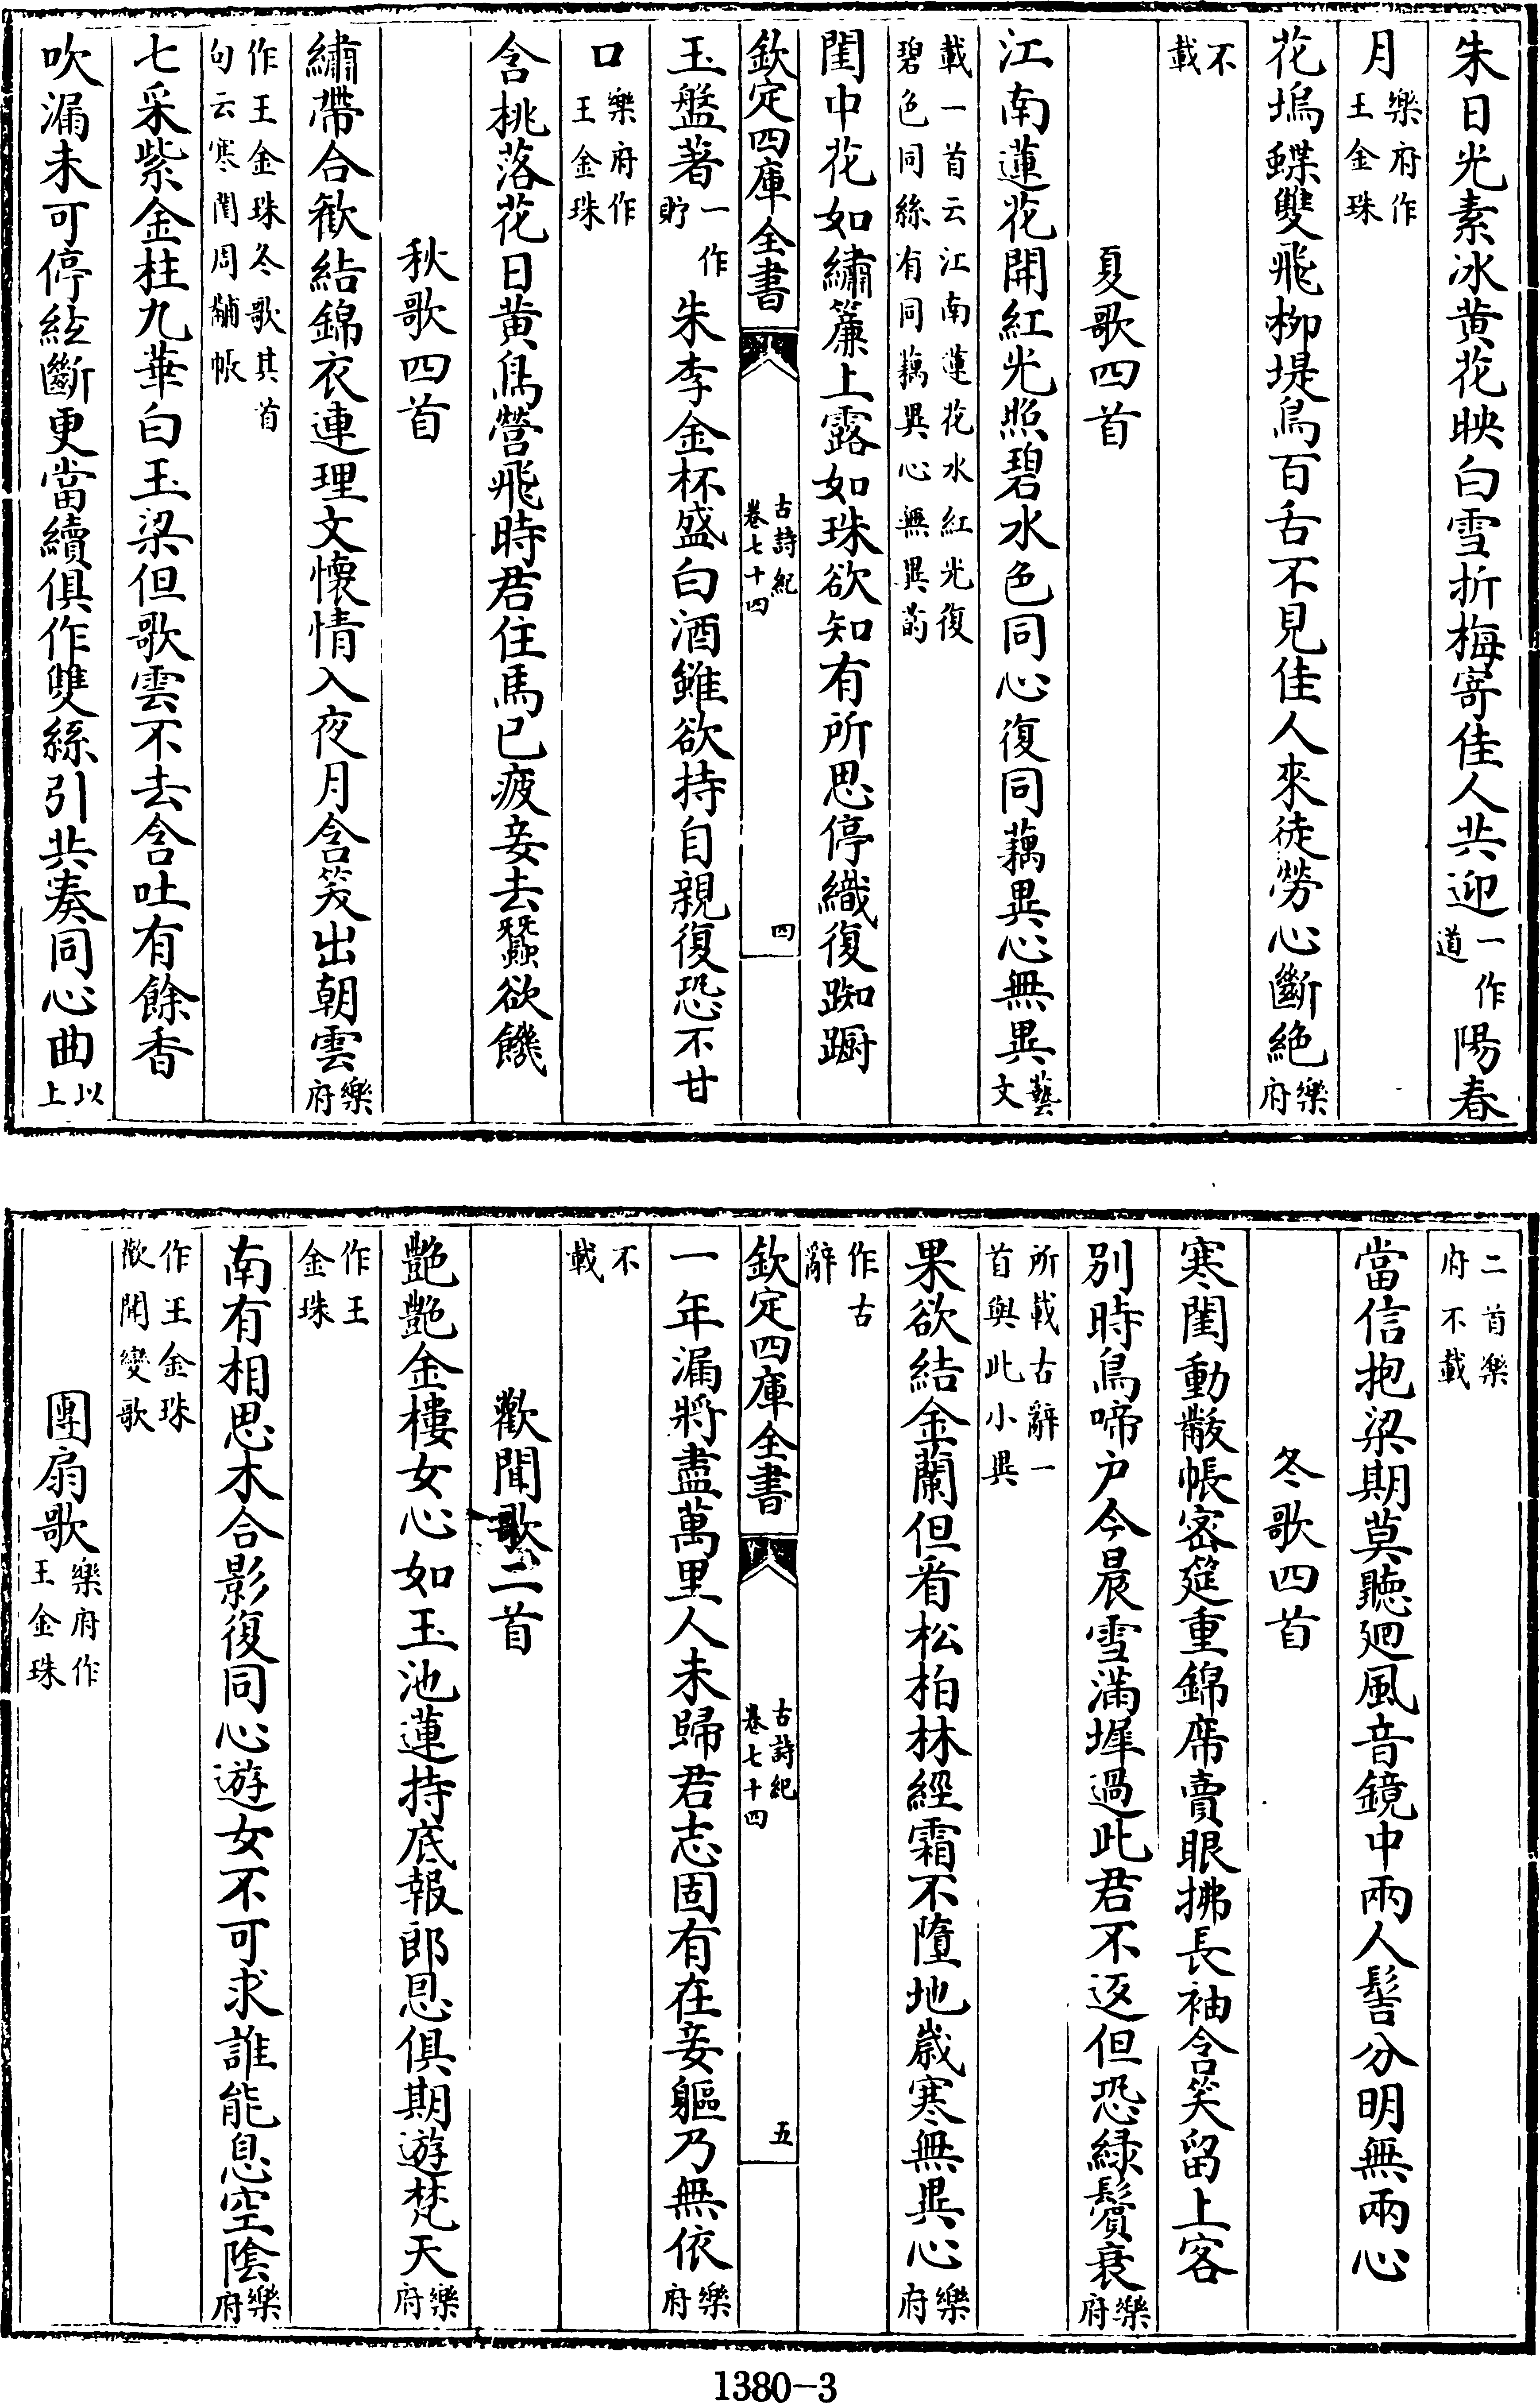 朱日光素冰黃花映白雪折梅寄佳人共迎一作道陽春
月樂府作王金珠
花塢蝶雙飛柳堤鳥百舌不見佳人來徒勞心斷絶樂府
不載
夏歌四首
江南蓮花開紅光照碧水色同心復同藕異心無異藝文
載一首云江南蓮花水紅光復碧色同絲有同藕異心無異菂
閨中花如繡簾上露如珠欲知有所思停織復踟蹰
欽定四庫全書
古詩紀
卷七十四
四
玉盤著一作貯朱李金杯盛白酒雖欲持自親復恐不甘
口樂府作王金珠
含桃落花日黄鳥營飛時君住馬已疲妾去蠶欲饑
秋歌四首
繡帶合歡結錦衣連理文懷情入夜月含笑出朝雲樂府
作王金珠冬歌其首句云寒閨周黼帳
七采紫金柱九華白玉梁但歌雲不去含吐有餘香
吹漏未可停絃斷更當續俱作雙絲引共奏同心曲以上
二首樂府不載
當信抱梁期莫聽廻風音鏡中兩人髻分明無兩心
冬歌四首
寒閨動黻帳密筵重錦席賣眼拂長袖含笑留上客
别時鳥啼户今晨雪滿墀過此君不返但恐緑鬢衰樂府
所載古辭一首與此小異
果欲結金蘭但看松柏林經霜不墮地歲寒無異心樂府
作古辭
欽定四庫全書
古詩紀
卷七十四
五
一年漏將盡萬里人未歸君志固有在妾軀乃無依樂府
不載
歡聞歌二首
艷艷金樓女心如玉池蓮持底報郎恩俱期遊梵天樂府
作王金珠
南有相思木合影復同心遊女不可求誰能息空陰樂府
作王金珠歡聞變歌
團扇歌樂府作王金珠
1380-3